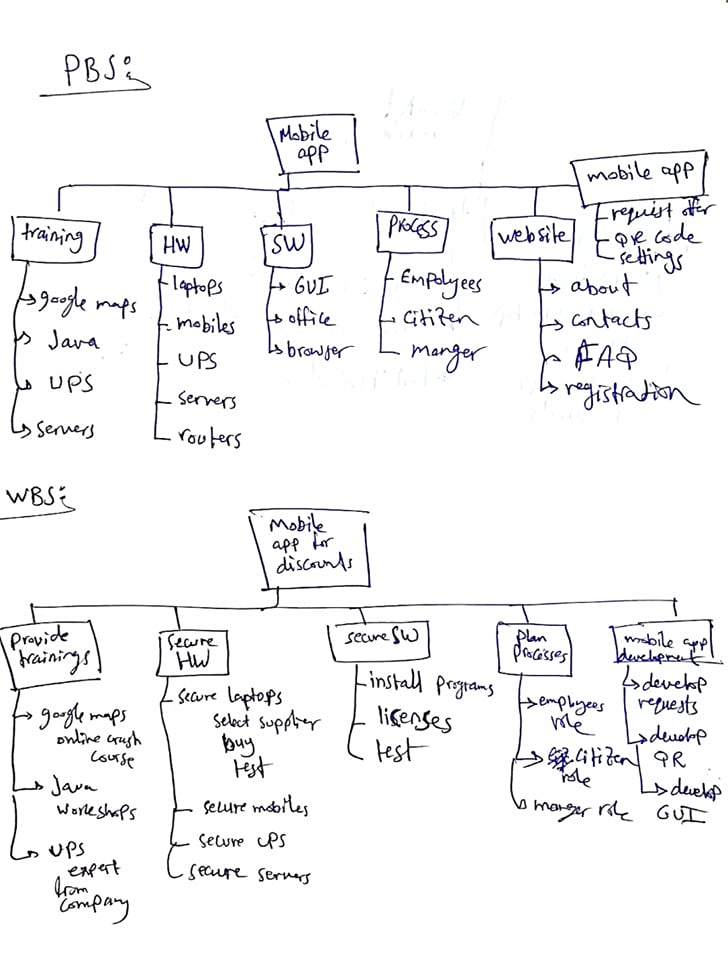 PBS:
Mobile
app
mobile app
requist offer
QR code
settings
training
google maps
Java
UPS
servers
HW
laptops
mobiles
UPS
servers
routers
SW
GUI
office
browser
Process
Empolyees
citizen
manger
website
about
contacts
FAQ
registration
WBS:
Mobile
app for
discounts
Provide
trainings
google maps
online crash
course
Java
workshops
UPS
expert
from
company
Secure
HW
secure laptops
select supplier
buy
test
secure mobiles
secure UPS
secure servers
secure SW
install programs
licenses
test
Plan
Processes
employees
role
citizen
role
manger role
mobile app
development
develop
requests
develop
QR
develop
GUI